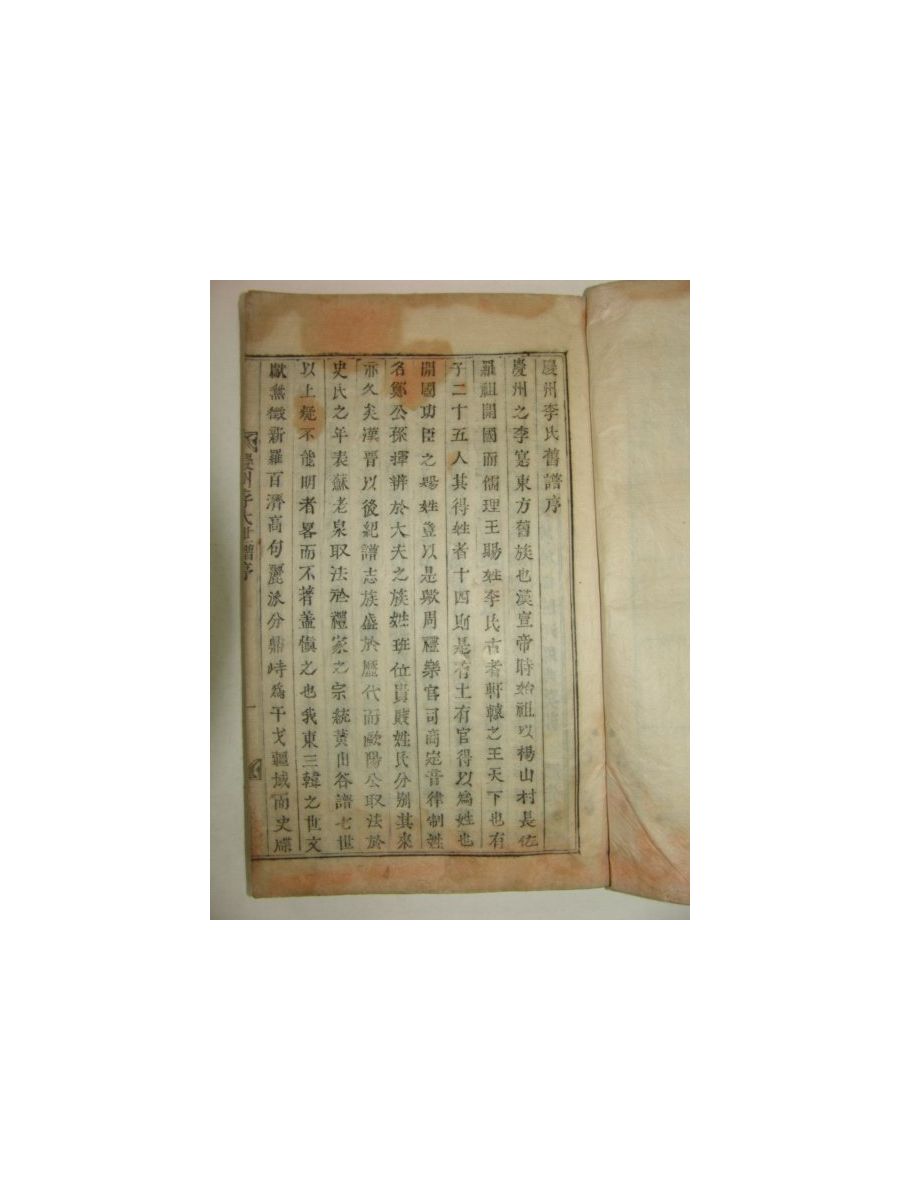 慶州李氏舊譜序
慶州之李寔東方舊族也漢宣帝時始祖以楊山村長佐
羅祖開國而儒理王賜姓李氏古者軒轅之王天下也有
子二十五人其得姓者十四則是有土有官得以為姓也
開國功臣之賜姓豈以是歟周禮樂官司商定音律制姓
名鄭公孫揮辨於大夫之族姓班位貴賤姓氏分別其來
亦久矣漢晋以後紀譜志族盛於歷代而歐陽公取法於
史氏之年表蘇老泉取法於禮家之宗統黃山谷譜七世
以上疑不能明者畧而不著盖愼之也我東三韓之世文
獻無徵新羅百濟高句麗派分鼎峙為干戈疆域而史牒
慶州李氏世譜序
一